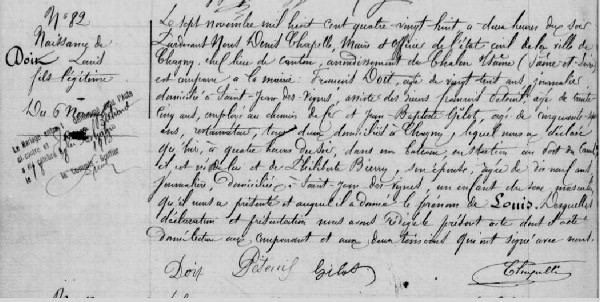 N° 82
Naissance de
Doit Louis
fils légitime
Du 6 Novembre
Le sept novembre mil huit cent quatre vingt huit à deux heures du soir
Pardevant Nous Denis Chapelle, Maire et Officier de l'état civil de la ville de
Chagny, chef lieu de canton, arrondissement de Chalon (Saône et Loire)
est comparu à la mairie François Doit, agé de vingt huit ans, journalier
domicilié à Saint-Jean des Vignes, assisté des sieurs François agé de trente
cinq ans, employé au chemin de fer et Jean Baptiste Gélot, agé de cinquante
ans, restaurateur, tous deux domiciliés à Chagny, lequel nous a déclaré
qu'hier, à quatre heures du soir, dans un bateau en station au port du Canal
il est né de lui et de son épouse, agée de dix neuf ans
journalière, Domiciliée à Saint-Jean des Vignes, un enfant du sexe masculin
qu'il nous a présenté et auquel il a donné le prénom de Louis. Desquelles
déclaration et présentation nous avons Rédigé le présent acte dont lecture
aux comparant et aux deux témoins qui ont signé avec nous.
Doit Gélot